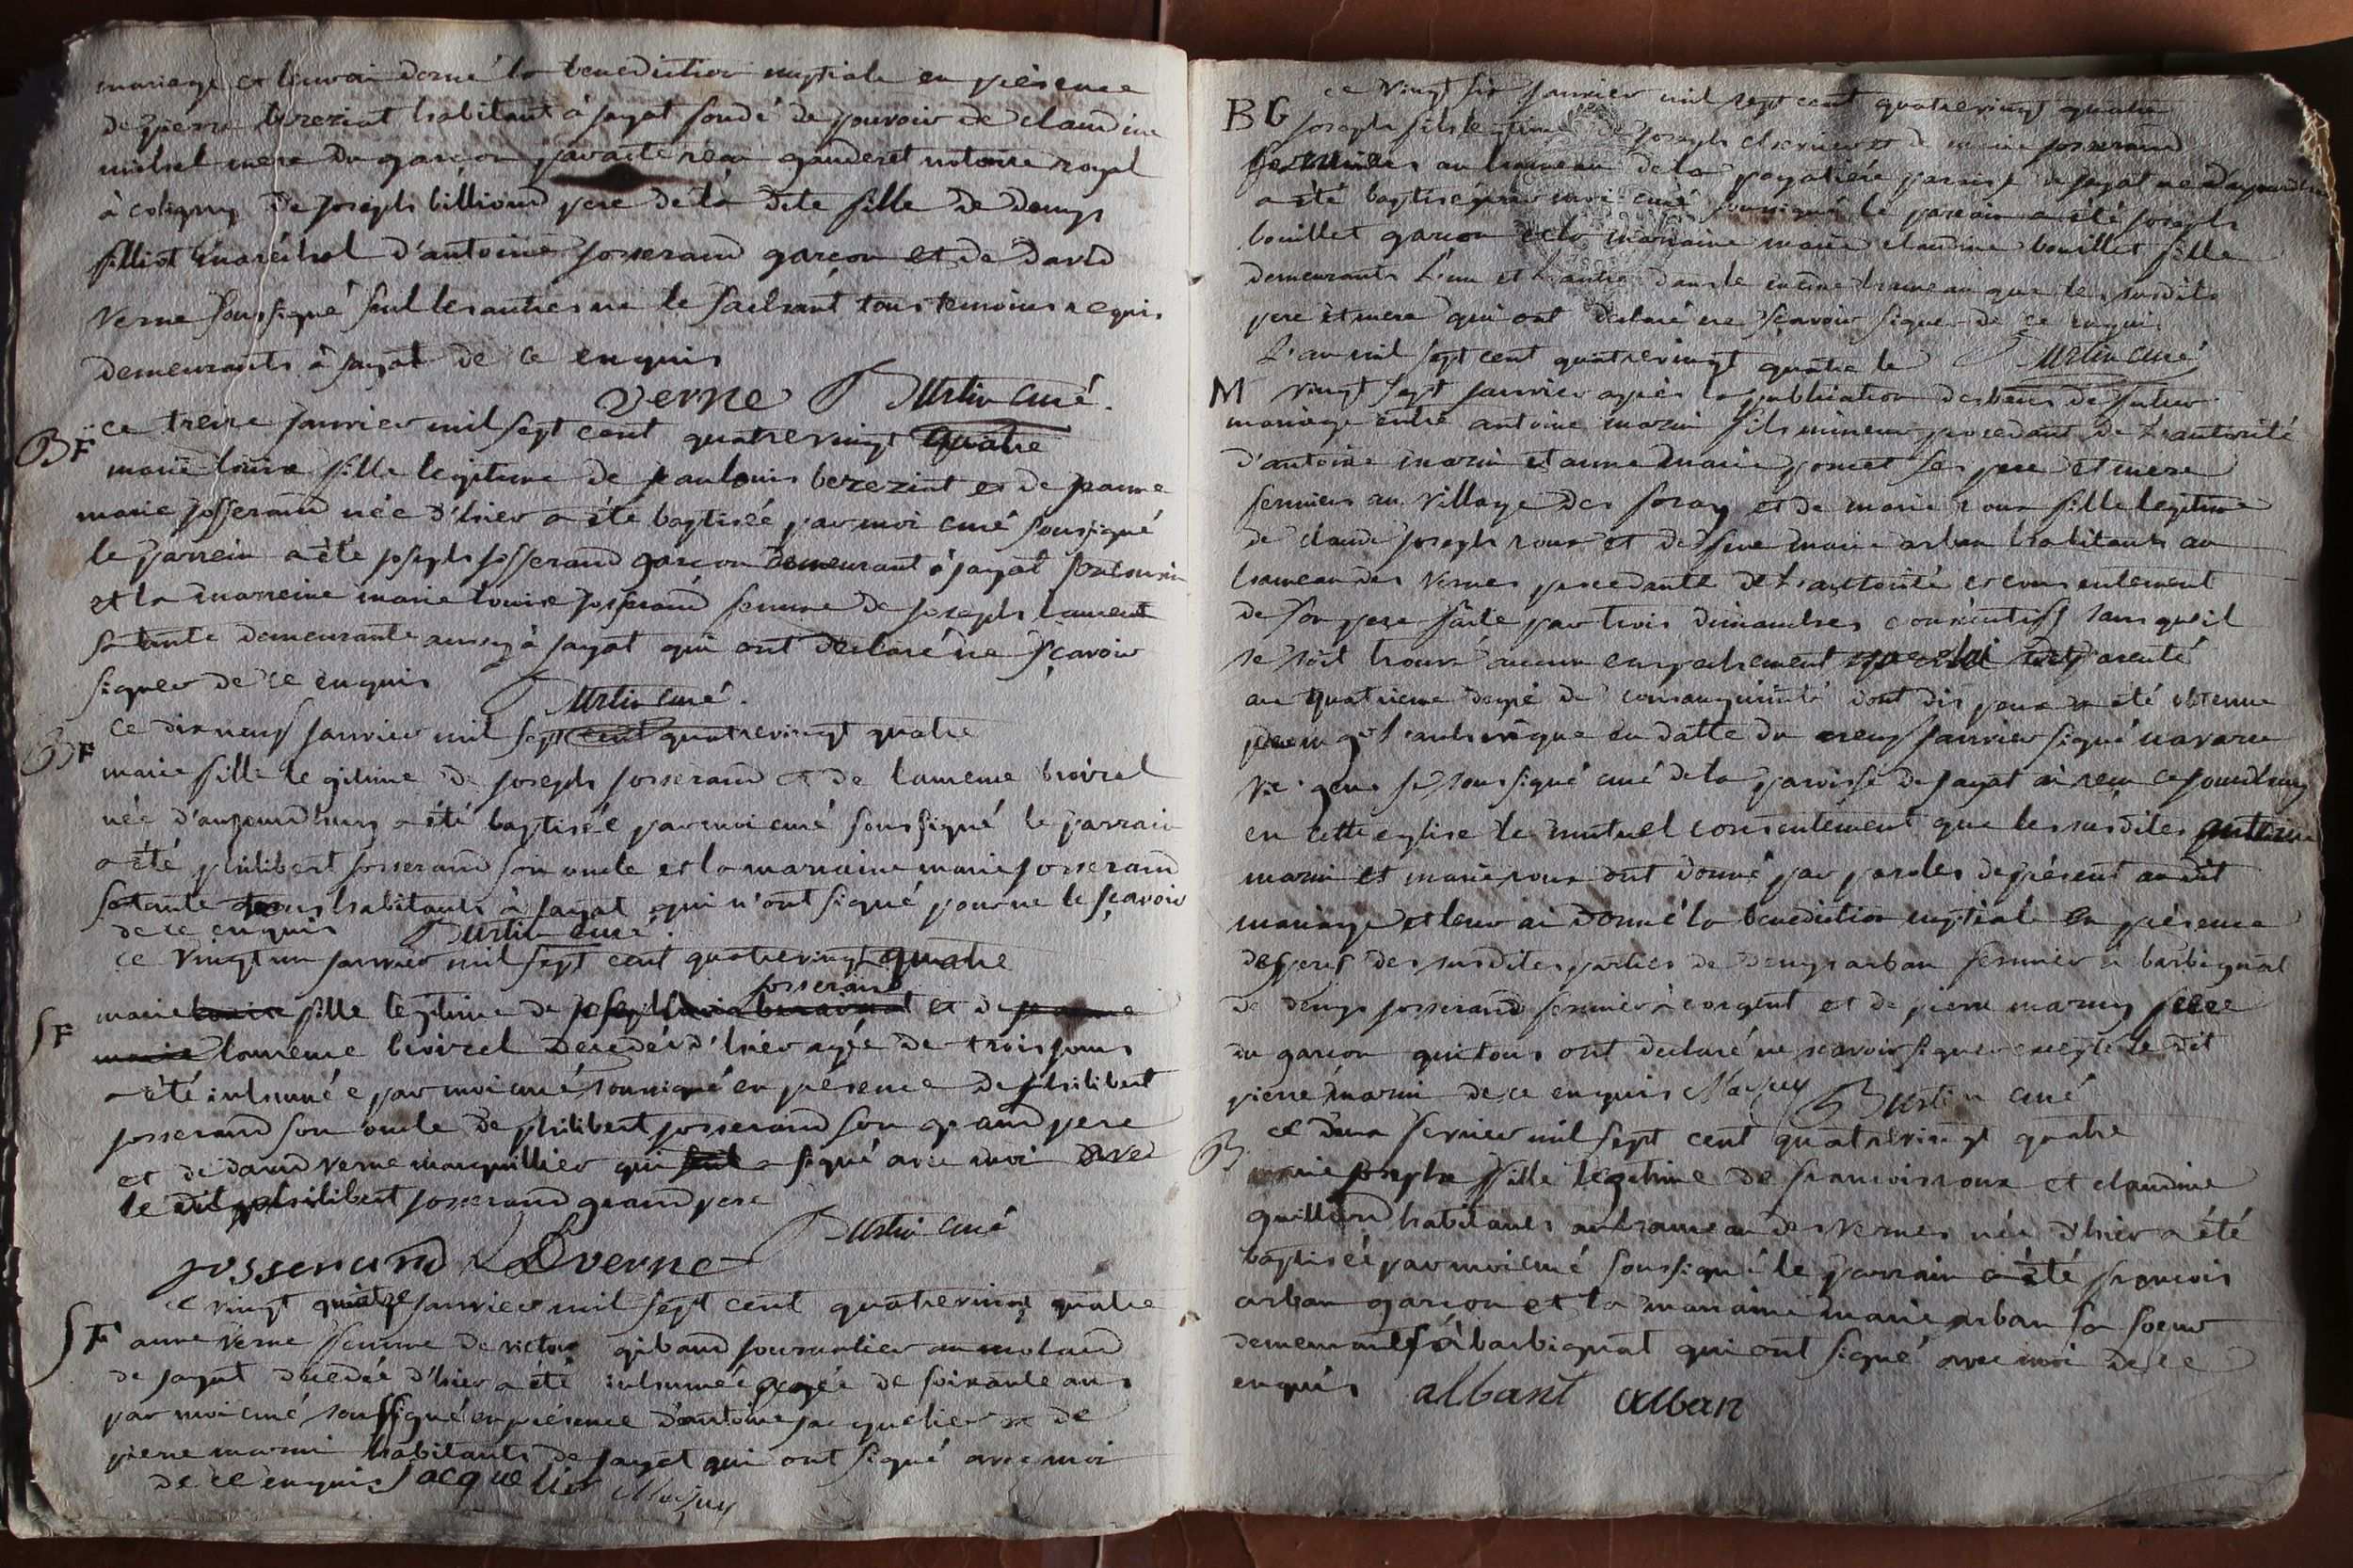 mariage et leur ai donné la benediction nuptiale en présence
de pierre brereziat habitant à jayat fondé de pouvoir de claudine
michel mere du garçon par acte recu gauderet notaire royal
à coligny de joseph billioud pere de la dite fille de denys
filliot maréchal d'antoine josserand garçon et de david
verne soussigné seul les autres ne le sachant tous temoins requis
demeurants à jayat de ce enquis
verne Burtin curé.
BF ce treize janvier mil sept cent quatrevingt quatre
marie louise fille legitime de jean louis berezziat et de jeanne
marie josserand née d'hier a été baptisée par moi curé soussigné
le parrein a été joseph josserand garçon demeurant à jayat
et la marreine marie louise josserand femme de joseph laurent
sa tante demeurante aussy à jayat qui ont declaré ne sçavoir
signer de ce enquis Burtin curé.
BF ce dix neuf janvier mil sept cent quatrevingt quatre
marie fille legitime de joseph josserand et de laurence broirel
née d'aujourdhuy a été baptisée par moi curé soussigné le parrain
a été philibert josserand son oncle et la marraine marie josserand
sa tante tous habitants à jayat qui n'ont signé pour ne le sçavoir
de ce enquis Burtin curé.
ce vingt un janvier mil sept cent quatrevingt quatre
josserand
SF marie fille legitime de joseph et de
laurence broirel decedée d'hier agée de trois jours
a été inhumée par moi curé soussigné en présence de philibert
josserand son oncle de philibert josserand son grand pere
et de david verne marguillier qui a signé avec moi avec
le dit philibert josserand grand pere
Burtin curé
josserand D verne
ce vingt quatre janvier mil sept cent quatrevingt quatre
SF anne verne femme de victor giboud journalier au molard
de jayat décédée d'hier a été inhumée agée de soixante ans
par moi curé soussigné en présence d'antoine jacquelier et de
pierre marin habitants de jayat qui ont signé avec moi
de ce enquis jacquelier
BG ce vingt six janvier mil sept cent quatrevingt quatre
joseph fils legitime de joseph et de marie josserand
fermiers au hameau de la payatiere paroisse de jayat né d'aujourdhuy
a été baptisé par moi curé soussigné le parrain a été joseph
bouillet garçon et la marraine marie claudine bouillet fille
demeurants l'un et l'autre dans le même hameau que les susdits
pere et mere qui ont declaré ne sçavoir signer de ce enquis
Burtin curé
M L'an mil sept cent quatrevingt quatre le
vingt sept janvier après la publication des bancs de futur
mariage entre antoine marin fils mineur procedant de l'autorité
d'antoine marin et anne marie poncet ses pere et mere
fermiers au village des foray et de marie roux fille legitime
de claude joseph roux et de feue marie arban habitants au
hameau des vernes procedante de l'autorité et consentement
de son pere faite par trois dimanches consécutifs sans qu'il
se soit trouvé aucun empechement que celui de parenté
au quatrieme degré de consanguinité dont dispense a été obtenue
de mgr l'archevêque en datte du neuf janvier signé navarre
vic. gene je soussigné curé de la paroisse de jayat ai recu ce jourdhuy
en cette eglise le mutuel consentement que les susdites antoine
marin et marie roux ont donné par paroles de présent au dit
mariage et leur ai donné la benediction nuptiale en présence
des peres des susdites parties de denys arban fermier à barbignat
de denys josserand fermier à corgent et de pierre marin
du garçon qui tous ont declaré ne scavoir signer excepté le dit
pierre marin de ce enquis Burtin curé
B ce deux fevrier mil sept cent quatrevingt quatre
marie josephe fille legitime de francois roux et claudine
guillard habitants au hameau des vernes née d'hier a été
baptisée par moi curé soussigné le parrain a été francois
arban garçon et la marraine marie arban sa soeur
demeurants à barbignat qui ont signé avec moi de ce
enquis albant alban